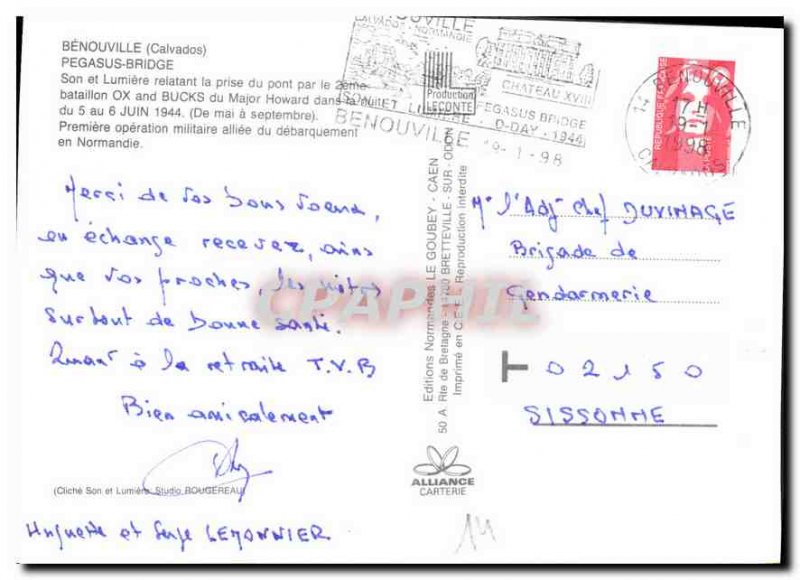 BÉNOUVILLE (Calvados)
PEGASUS-BRIDGE
Son et Lumière relatant la prise du pont par le 2ème
bataillon OX and BUCKS du Major Howard dans la nuit
du 5 au 6 JUIN 1944. (De mai à septembre).
Première opération militaire alliée du débarquement
en Normandie.
BENOUVILLE
CALVADOS - NORMANDIE
CHATEAU XVIII
SON ET LUMIERE
PEGASUS BRIDGE
D-DAY - 1944
BENOUVILLE
19-1-98
Production
LECONTE
REPUBLIQUE FRANÇAISE
14 BENOUVILLE
17H
19-1
1998
CALVADOS
Merci de vos bons voeux,
en échange recevez, ainsi
que vos proches, les nôtres
surtout de bonne santé.
Quant à la retraite T.V.B
Bien amicalement
(Cliché Son et Lumière Studio ROUGEREAU)
Huguette et Serge LEMONNIER
Editions Normandes LE GOUBEY - CAEN
50 A. Rte de Bretagne - 14760 BRETTEVILLE - SUR - ODON
Imprimé en C.E.E. Reproduction interdite
ALLIANCE
CARTERIE
Mr l'Adj Chef DUVINAGE
Brigade de
Gendarmerie
T 02150
SISSONNE
14
CPAPHIL